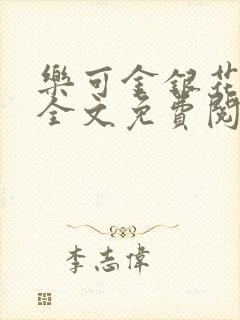 樂可金銀花
全文免費閱
李志偉